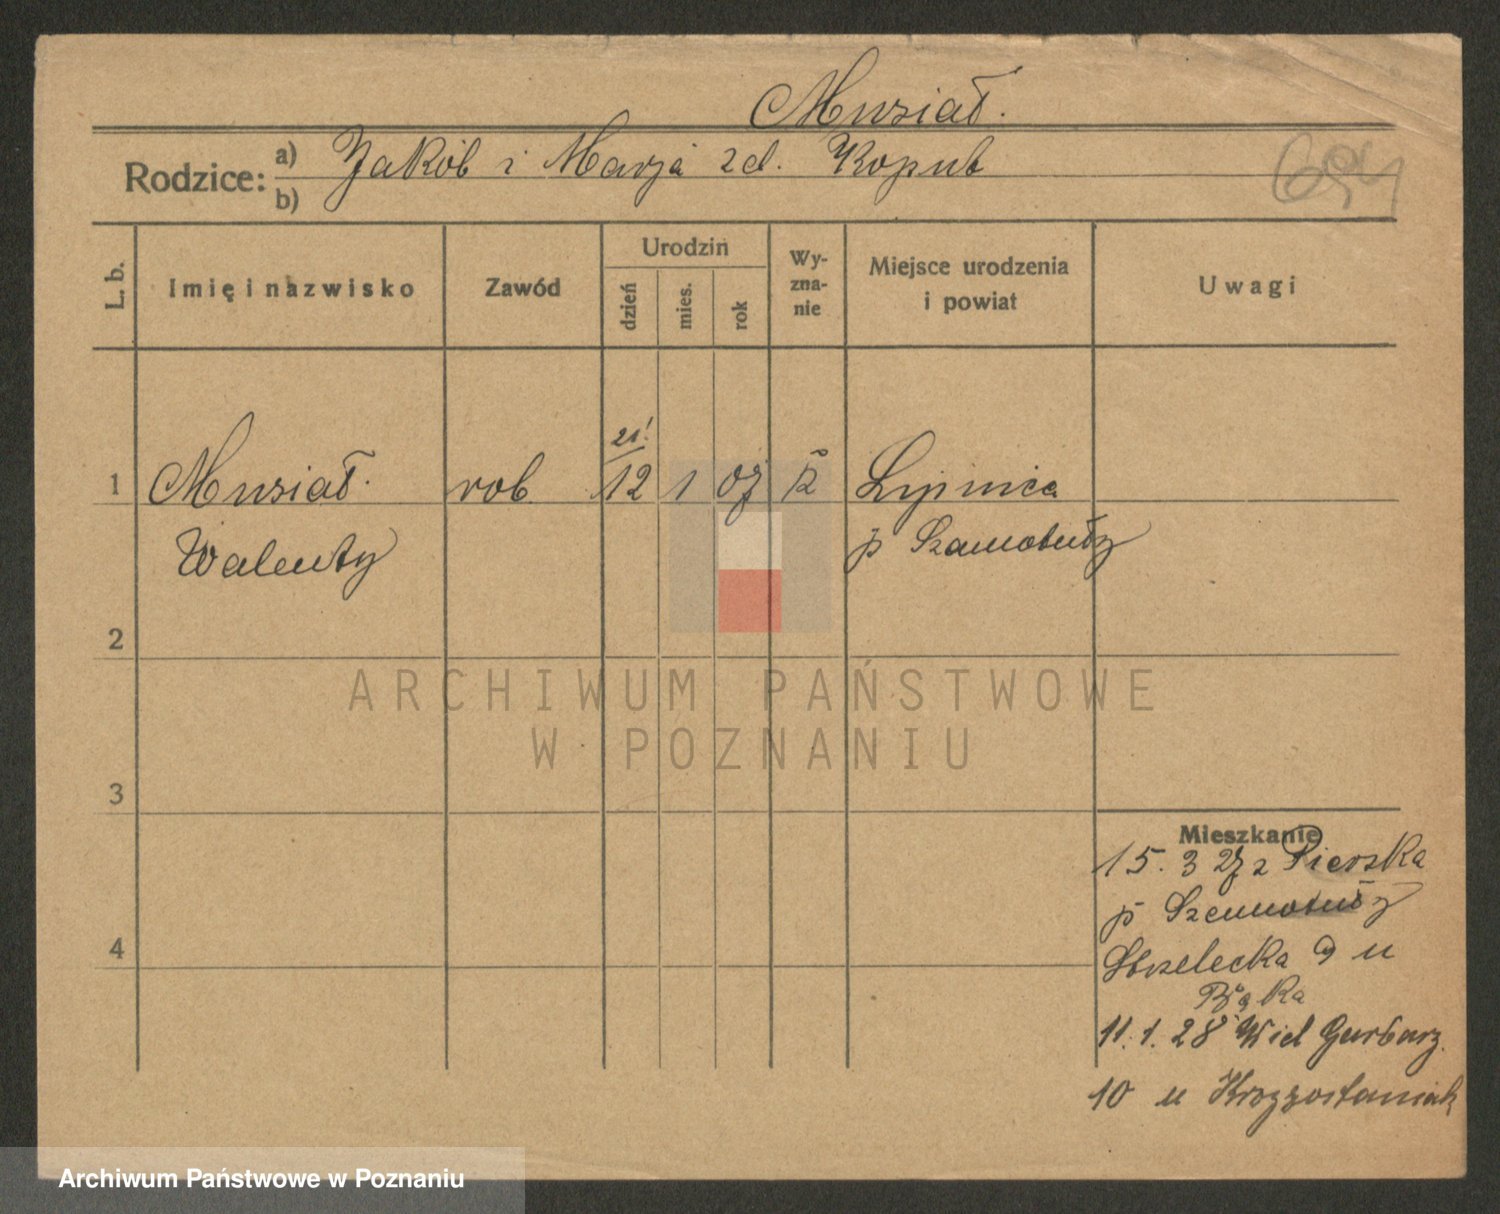 Musiał.
Rodzice: a) Jakób i Marja zd. Koput
b)
L. b.
Imię i nazwisko
Zawód
Urodzin
dzień
mies.
rok
Wy-
zna-
nie
Miejsce urodzenia
i powiat
Uwagi
21!
1 Musiał. rob. 12 1 07 Lipnica
Walenty p Szamotuły
2
3
4
ARCHIWUM PAŃSTWOWE
W POZNANIU
Mieszkanie
15. 3 27 z Pierska
p Szamotuły
Strzelecka 9 u
Bąka
11.1.28 Wiel Garbarz.
10 u Krzyzostaniak
Archiwum Państwowe w Poznaniu